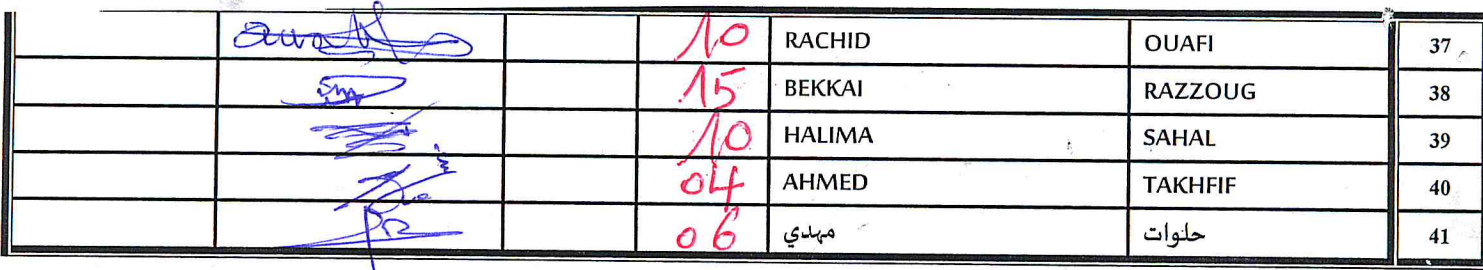 10 RACHID OUAFI 37
15 BEKKAI RAZZOUG 38
10 HALIMA SAHAL 39
04 AHMED TAKHFIF 40
06 مهدي حلوات 41